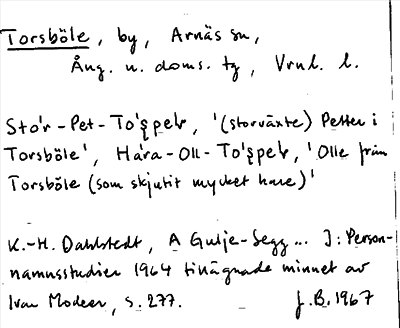 Torsböle, by, Arnäs sn,
Ång. n. doms. tg, Vrnl. l.
Sto'r-Pet-To'ʂpeb, '(storväxte) Petter i
Torsböle', Ha'ra-Oll-To'ʂpeb, 'Olle från
Torsböle (som skjutit mycket hare)'
K.-H. Dahlstedt, A Gulje-Segg... I: Person-
namnsstudier 1964 tillägnade minnet av
Ivar Modéer, s. 277. J.B. 1967